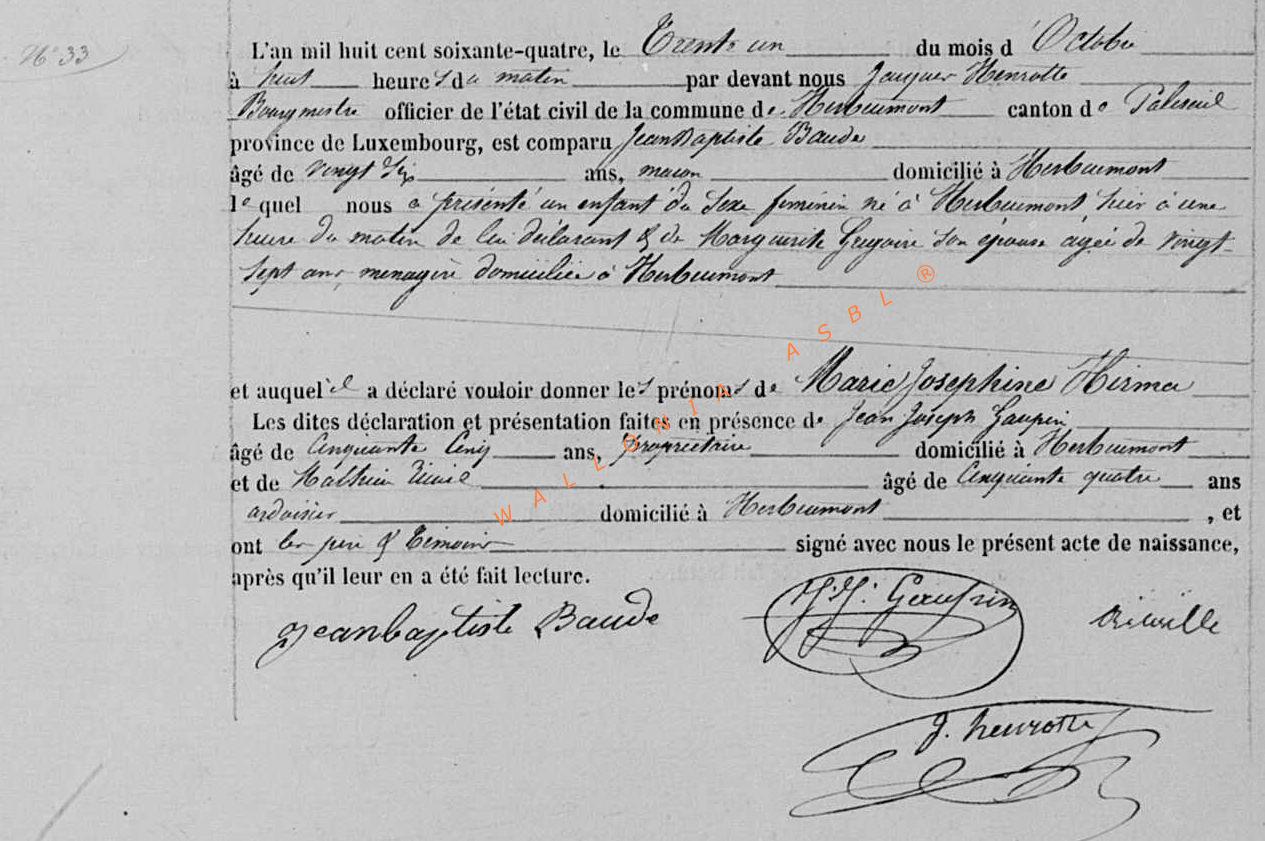 N° 33
L'an mil huit cent soixante-quatre, le Trente un du mois d'Octobre
à huit heures du matin par devant nous Jacques Henrotte
Bourgmestre officier de l'état civil de la commune de Herbeumont canton de Paliseul
province de Luxembourg, est comparu Jean Baptiste Baude
âgé de vingt six ans, maçon domicilié à Herbeumont
lequel nous a présenté un enfant du sexe feminin né à Herbeumont, hier à une
heure du matin de lui déclarant & de Marguerite Gregoire son épouse agée de vingt
sept ans, menagère domiciliée à Herbeumont
et auquel il a déclaré vouloir donner les prénoms de Marie Josephine Hirma
Les dites déclaration et présentation faites en présence de Jean Joseph Gaupin
âgé de Cinquante Cinq ans, propriétaire domicilié à Herbeumont
et de Mathieu âgé de Cinquante quatre ans
ardoisier domicilié à Herbeumont, et
ont les père & Témoins signé avec nous le présent acte de naissance,
après qu'il leur en a été fait lecture.
Jean baptiste Baude J.J. Gaupin
J. henrotte
WALLONIA ASBL ®